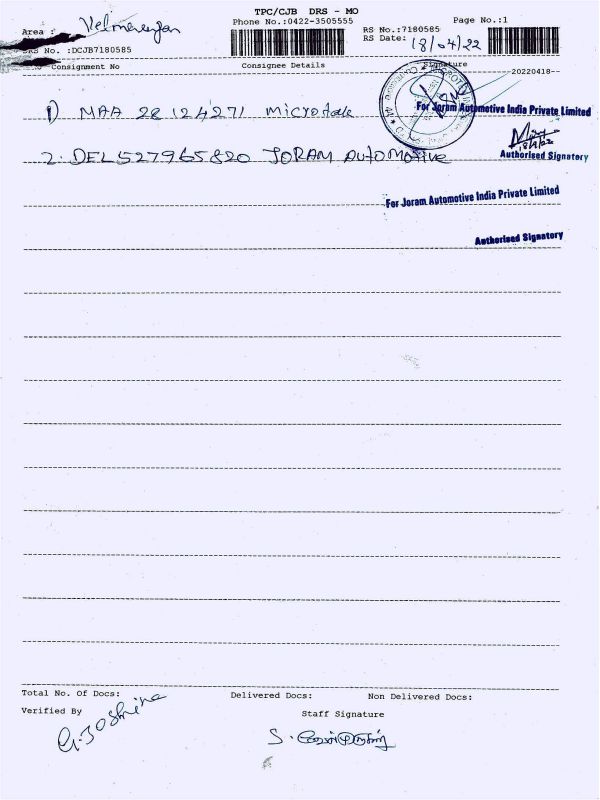 TPC/CJB DRS - MO
Phone No.:0422-3505555
Page No.:1
Area :
RS No.:7180585
RS Date: 18/04/22
DRS No. :DCJB7180585
Consignment No Consignee Details Signature
--20220418--
1) MAA 28124271
For Joram Automotive India Private Limited
2. DEL527965820 JORAM AUTOMOTIVE
18/4/22
Authorised Signatory
For Joram Automotive India Private Limited
Authorised Signatory
Total No. Of Docs: Delivered Docs: Non Delivered Docs:
Verified By
Staff Signature